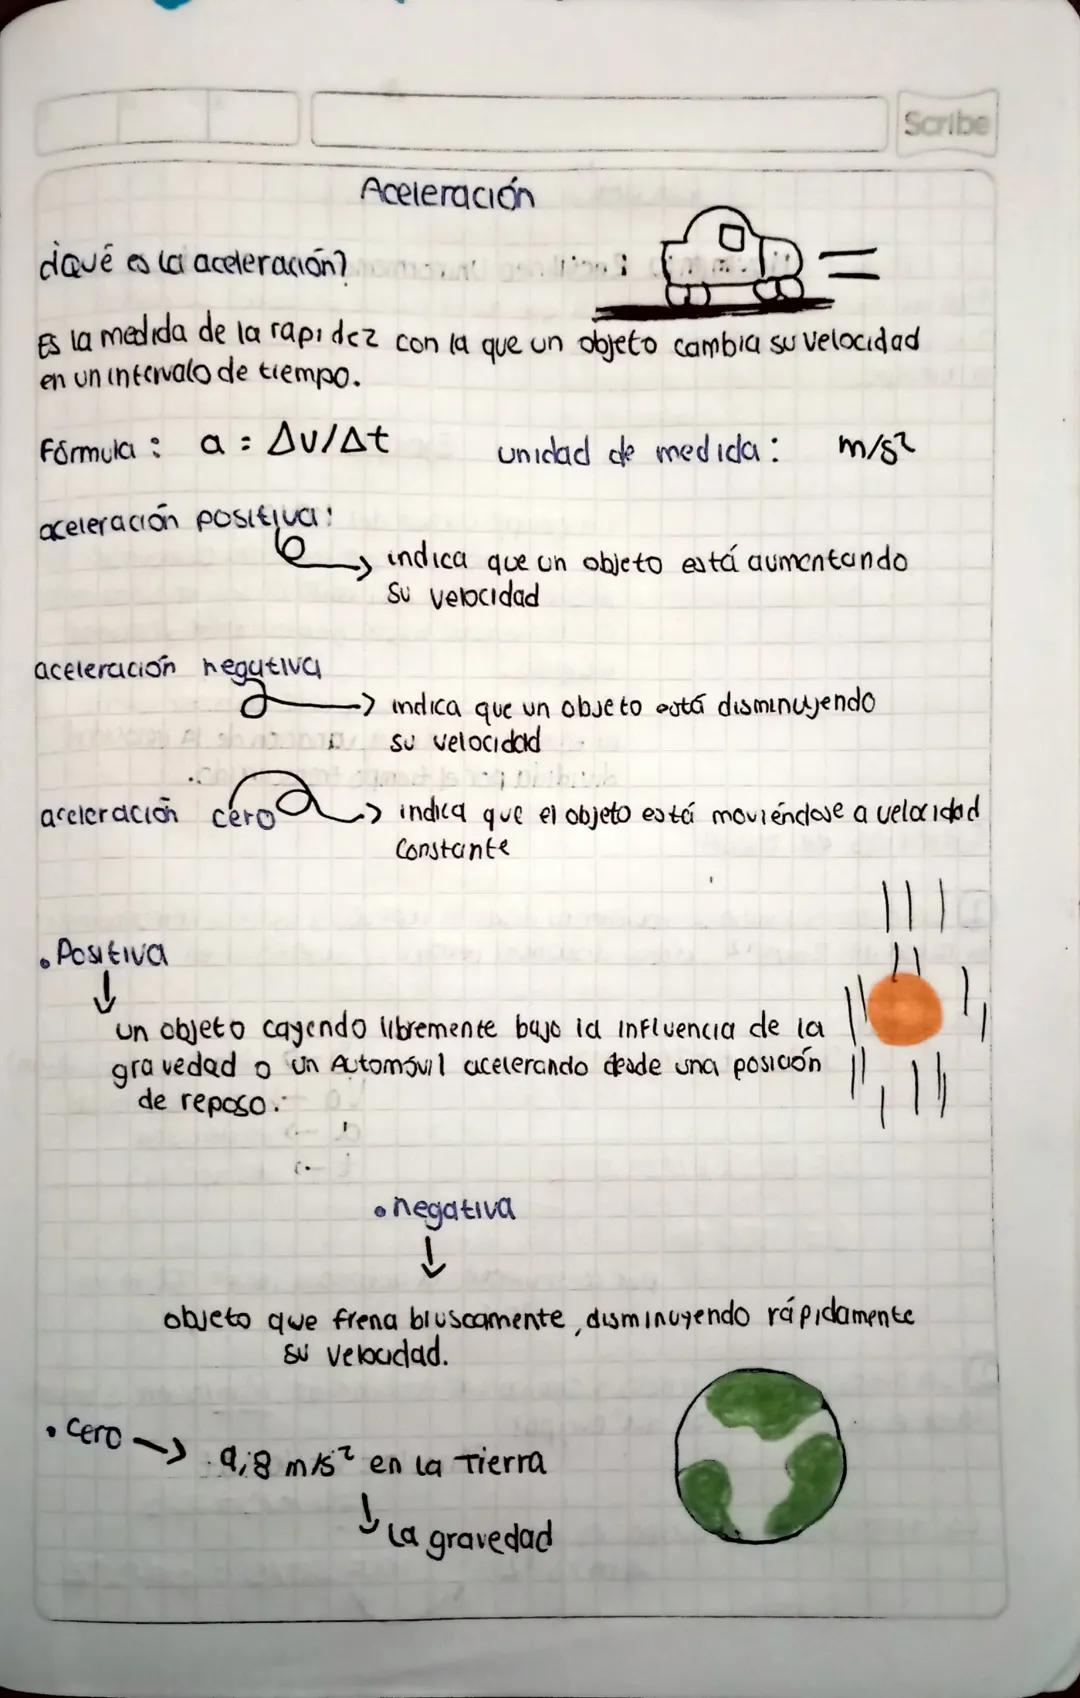 Scribe
Aceleración
¿Qué es la aceleración?
Es la medida de la rapidez con la que un objeto cambia su velocidad
en un intervalo de tiempo.
Fórmula: a = Δv/Δt unidad de medida: m/s²
aceleración positiva:
indica que un objeto está aumentando
su velocidad
aceleración negativa
indica que un objeto está disminuyendo
su velocidad
aceleración cero
indica que el objeto está moviéndose a velocidad
constante
• Positiva
un objeto cayendo libremente bajo la influencia de la
gravedad o un Automóvil acelerando desde una posición
de reposo.
• negativa
objeto que frena bruscamente, disminuyendo rápidamente
su velocidad.
• cero → 9,8 m/s² en la Tierra
La gravedad